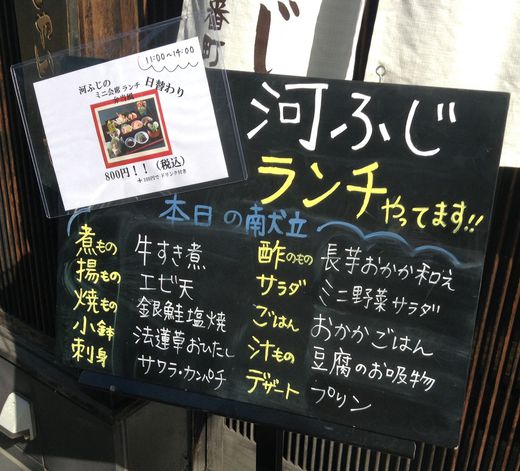 番町
11:00〜14:00
河ふじの
ミニ会席ランチ 日替わり
弁当風
800円！！（税込）
＋100円でドリンク付き
河ふじ
ランチやってます!!
本日の献立
煮もの 牛すき煮
揚もの エビ天
焼もの 銀鮭塩焼
小鉢 法蓮草おひたし
刺身 サワラ・カンパチ
酢のもの 長芋おかか和え
サラダ ミニ野菜サラダ
ごはん おかかごはん
汁もの 豆腐のお吸物
デザート プリン